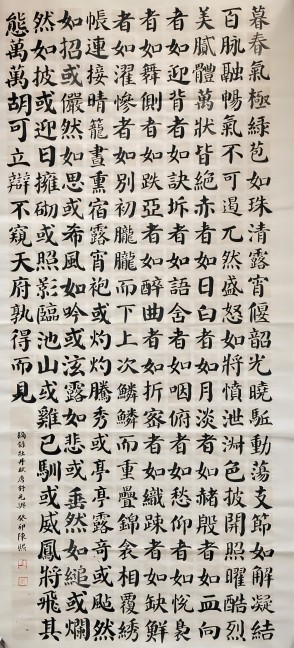 暮春氣極綠苞如珠清露宵偃韶光曉駈動蕩支節如解凝結
百脉融暢氣不可遏兀然盛怒如將憤泄淵色披開照曜酷烈
美膩體萬狀皆絶赤者如日白者如月淡者如赭殷者如血向
者如迎背者如訣坼者如語含者如咽俯者如愁仰者如悅裊
者如舞側者如跌亞者如醉曲者如折密者如織踈者如缺鮮
者如濯慘者如別初朧朧而下上次鱗鱗而重疊錦衾相覆繡
帳連接晴籠晝熏宿露宵袍或灼灼騰秀或亭亭露奇或颭然
如招或儼然如思或希風如吟或泫露如悲或垂然如縋或爛
然如披或迎日擁砌或照影臨池山或雞已馴或威鳳將飛其
態萬萬胡可立辯不窺天府孰得而見
摘錄牡丹賦唐舒元輿癸卯陳熙